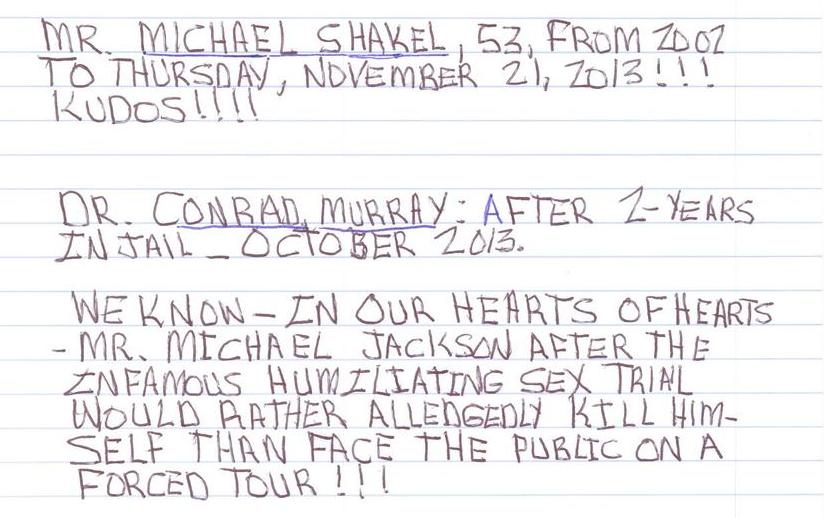 MR. MICHAEL SHAKEL, 53, FROM 2002
TO THURSDAY, NOVEMBER 21, 2013!!!
KUDOS!!!!
DR. CONRAD, MURRAY: AFTER 2-YEARS
IN JAIL _ OCTOBER 2013.
WE KNOW - IN OUR HEARTS OF HEARTS
- MR. MICHAEL JACKSON AFTER THE
INFAMOUS HUMILIATING SEX TRIAL
WOULD RATHER ALLEDGEDLY KILL HIM-
SELF THAN FACE THE PUBLIC ON A
FORCED TOUR!!!